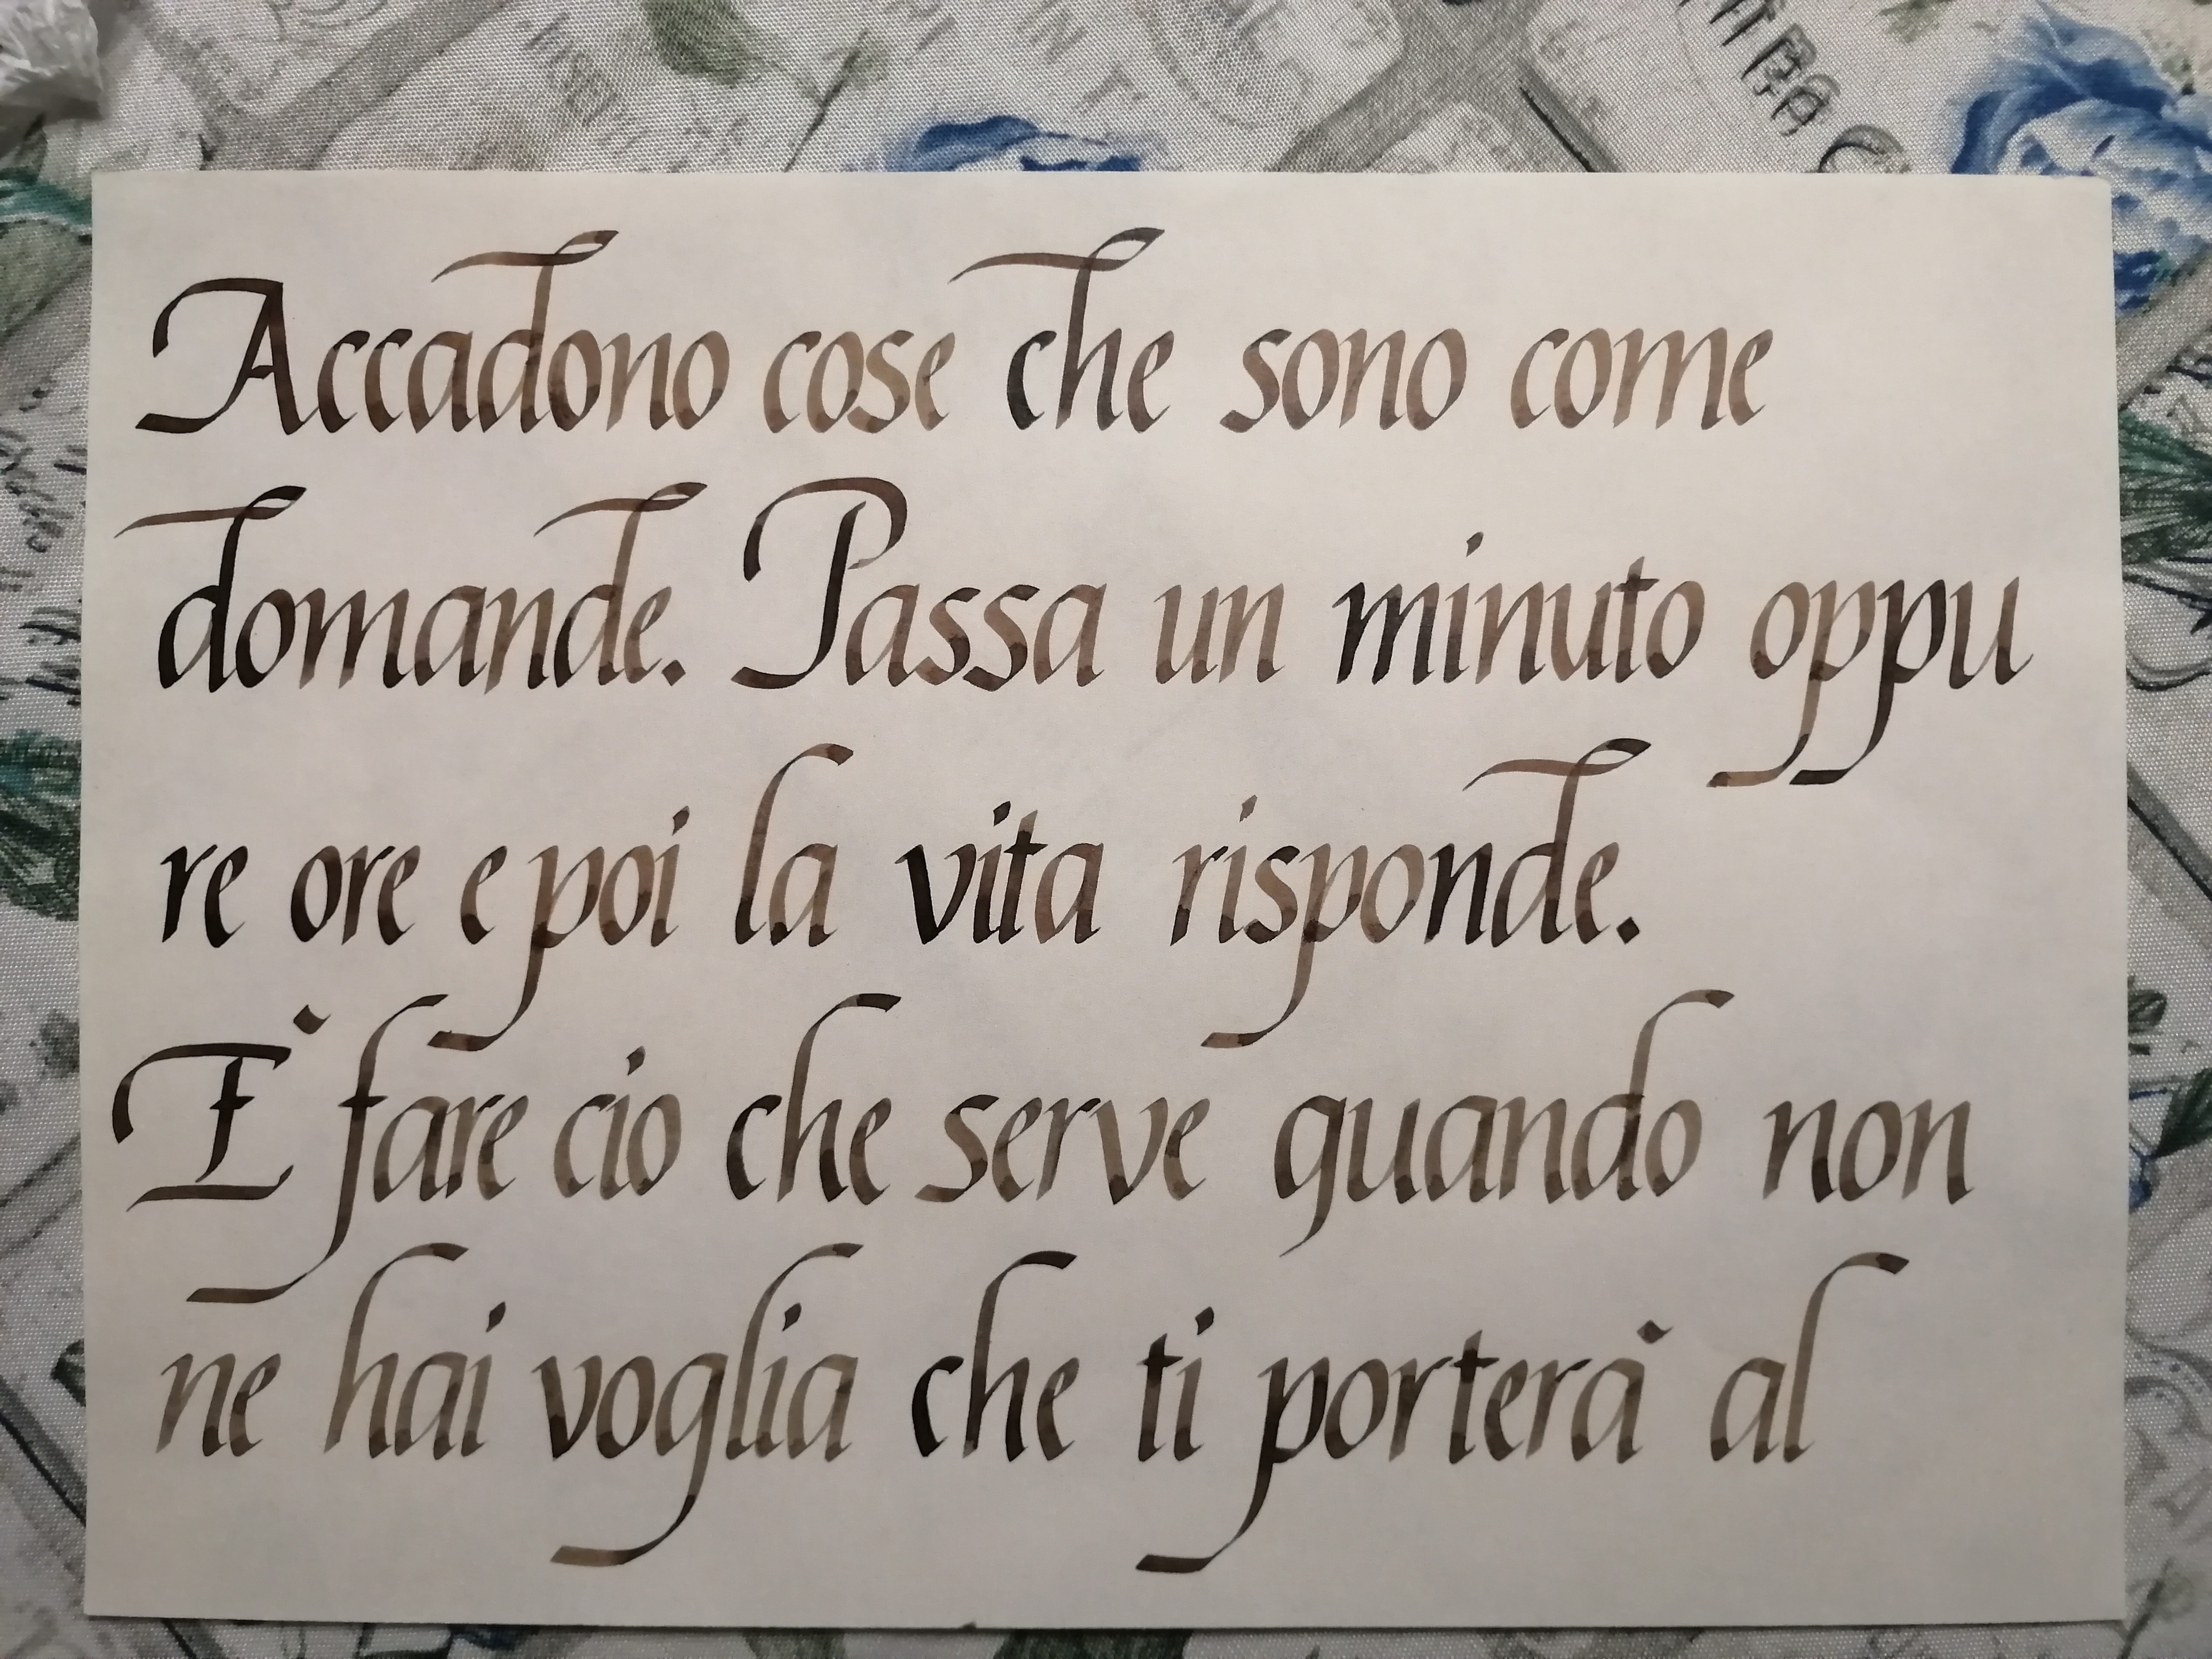 Accadono cose che sono come
domande. Passa un minuto oppu
re ore e poi la vita risponde.
È fare cio che serve quando non
ne hai voglia che ti porterà al